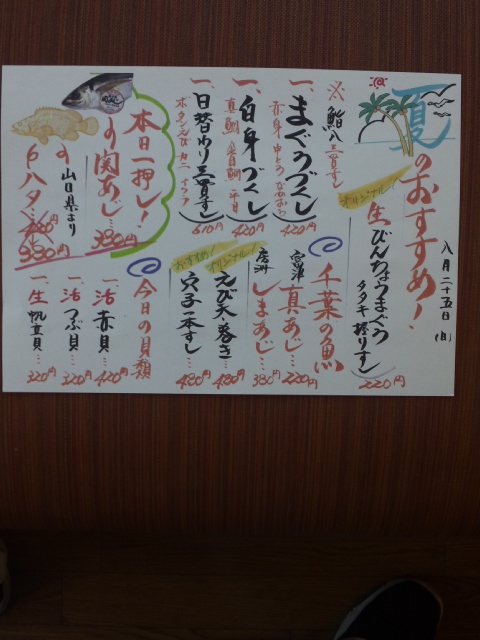 夏のおすすめ!
八月二十五日(日)
オリジナル!
生びんちょうまぐろ
タタキ握りすし
220円
※鮨八三貫すし
一、まぐろづくし
赤身 中とろ ながおち
420円
一、白身づくし
真鯛 金目鯛 平目
420円
一、日替わり三貫すし
ボタンえび カニ イクラ
610円
千葉の魚
富津 真あじ… 220円
房洲 しまあじ… 380円
オリジナル!
えび天巻き… 480円
おすすめ!
穴子一本すし… 480円
本日一押し!
の関あじ… 380円
山口県より
ハタ… 380円
今日の貝類
一、活赤貝… 420円
一、活つぶ貝… 320円
一、生帆立貝… 320円